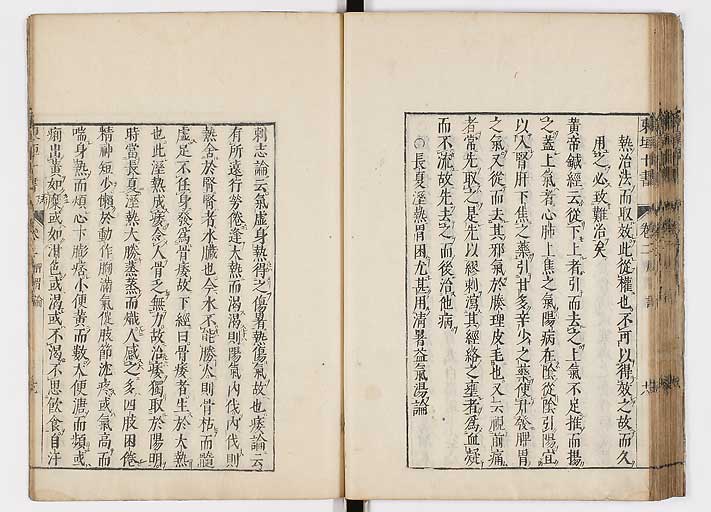 熱治法而取效此從權也不可以得效之故而久
用之必致難治矣
黃帝鍼經云從下上者引而去之上氣不足推而揚
之蓋上氣者心肺上焦之氣陽病在陰從陰引陽宜
以入腎肝下焦之藥引甘多辛少之藥使升發脾胃
之氣又從而去其邪氣於腠理皮毛也又云視前痛
者當先取之是先以繆刺瀉其經絡之壅者爲血凝
而不流故先去之而後治他病
○長夏溼熱胃困尤甚用淸暑益氣湯論
刺志論云氣虛身熱得之傷暑熱傷氣故也痿論云
有所遠行勞倦逢大熱而渴渴則陽氣內伐內伐則
熱舍於腎腎者水臟也今水不能勝火則骨枯而髓
虛足不任身發爲骨痿故下經曰骨痿者生於大熱
也此溼熱成痿令人骨乏無力故治痿獨取於陽明
時當長夏溼熱大勝蒸蒸而熾人感之多四肢困倦
精神短少懶於動作胸滿氣促肢節沈疼或氣高而
喘身熱而煩心下膨痞小便黃而數大便溏而頻或
痢出黃如糜或如泔色或渴或不渴不思飲食自汗
東垣十書
卷二